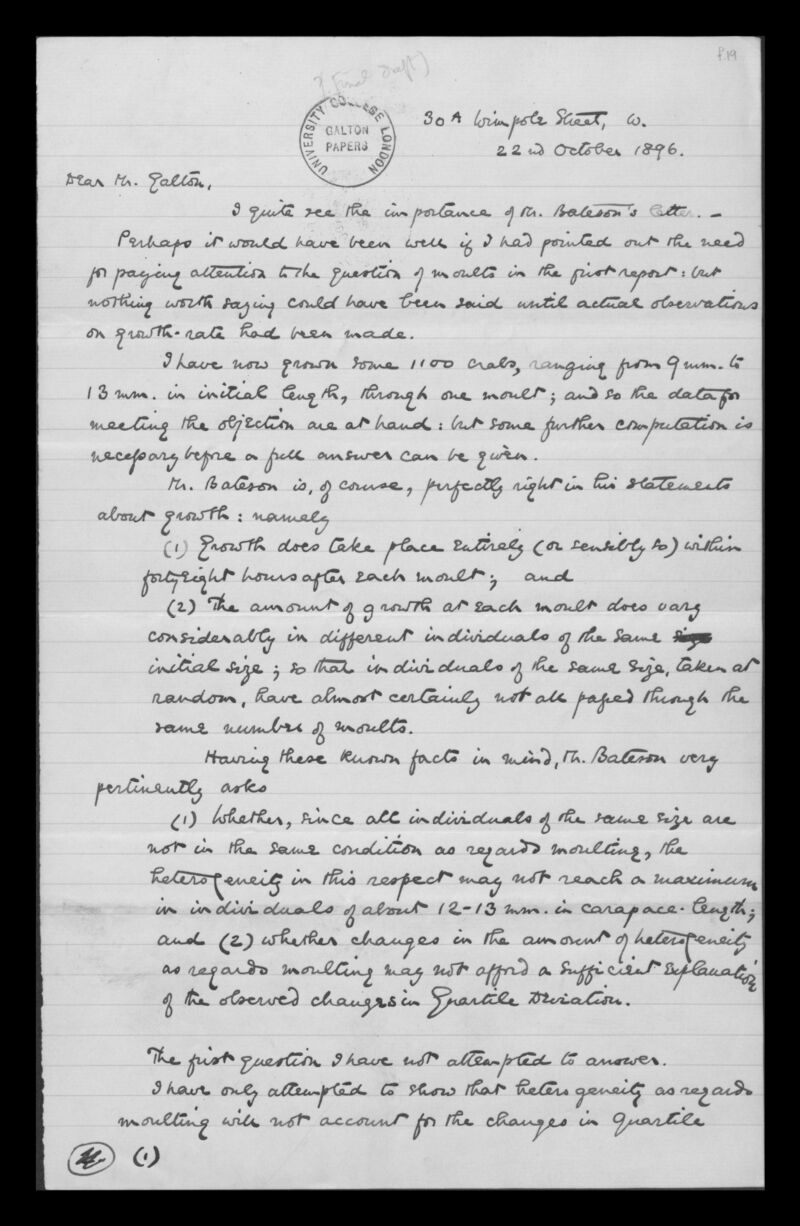 f.19
(Final draft)
UNIVERSITY COLLEGE LONDON
GALTON
PAPERS
30A Wimpole Street, W.
22nd October 1896.
Dear Mr. Galton,
I quite see the importance of Mr. Bateson's letter. –
Perhaps it would have been well if I had pointed out the need
for paying attention to the question of moults in the first report: but
nothing worth saying could have been said until actual observations
on growth-rate had been made.
I have now grown some 1100 crabs, ranging from 9mm. to
13 mm. in initial length, through one moult; and so the data for
meeting the objection are at hand: but some further computation is
necessary before a full answer can be given.
Mr. Bateson is, of course, perfectly right in his statements
about growth: namely
(1) Growth does take place entirely (or sensibly so) within
forty eight hours after each moult; and
(2) The amount of growth at each moult does vary
considerably in different individuals of the same
initial size; so that individuals of the same size, taken at
random, have almost certainly not all passed through the
same number of moults.
Having these known facts in mind, Mr. Bateson very
pertinently asks
(1) Whether, since all individuals of the same size are
not in the same condition as regards moulting, the
heterogeneity in this respect may not reach a maximum
in individuals of about 12-13 mm. in carapace-length;
and (2) whether changes in the amount of heterogeneity
as regards moulting may not afford a sufficient explanation
of the observed changes in Quartile Deviation.
The first question I have not attempted to answer.
I have only attempted to show that heterogeneity as regards
moulting will not account for the changes in Quartile
(1)